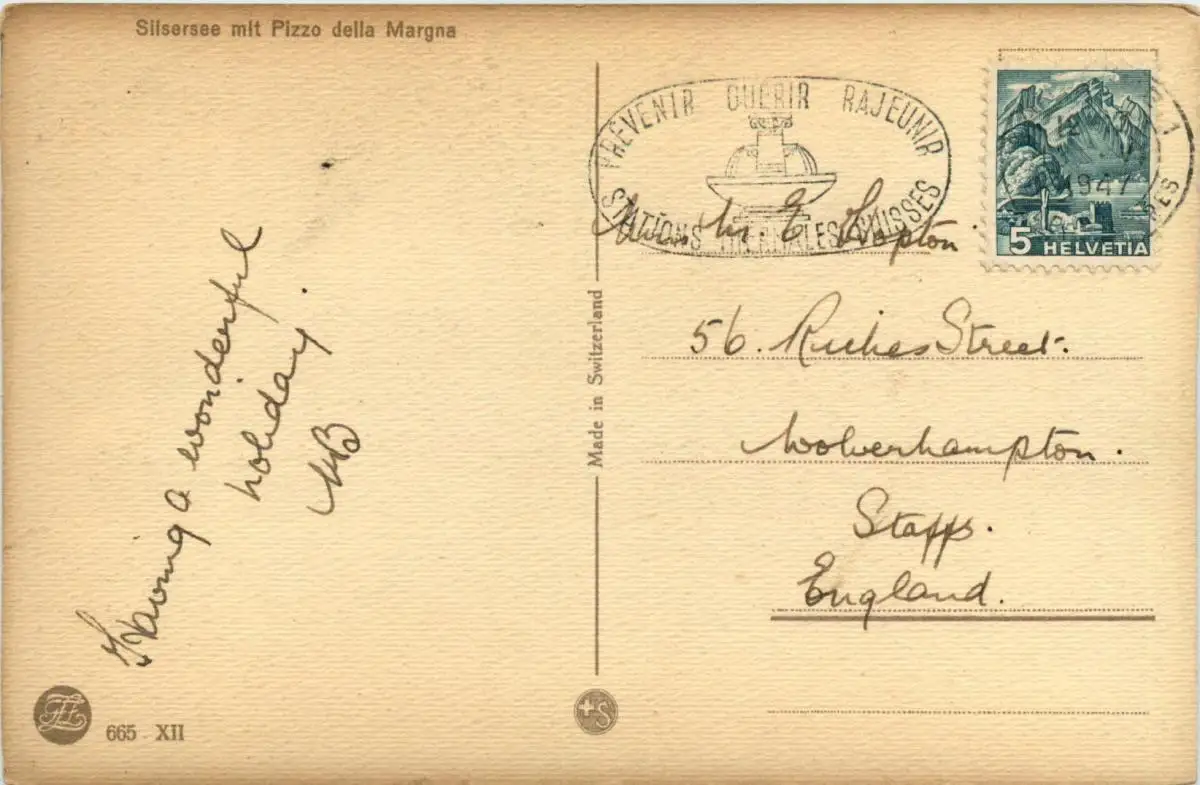 Silsersee mit Pizzo della Margna
Having a wonderful
holiday.
MB
665 XII
Made in Switzerland
PRÉVENIR GUÉRIR RAJEUNIR
STATIONS THERMALES SUISSES
1947
5 HELVETIA
E.
56. Riches Street.
Wolverhampton.
Staffs.
England.